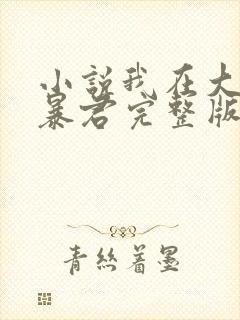 小说我在大
暴君完整版
青丝着墨